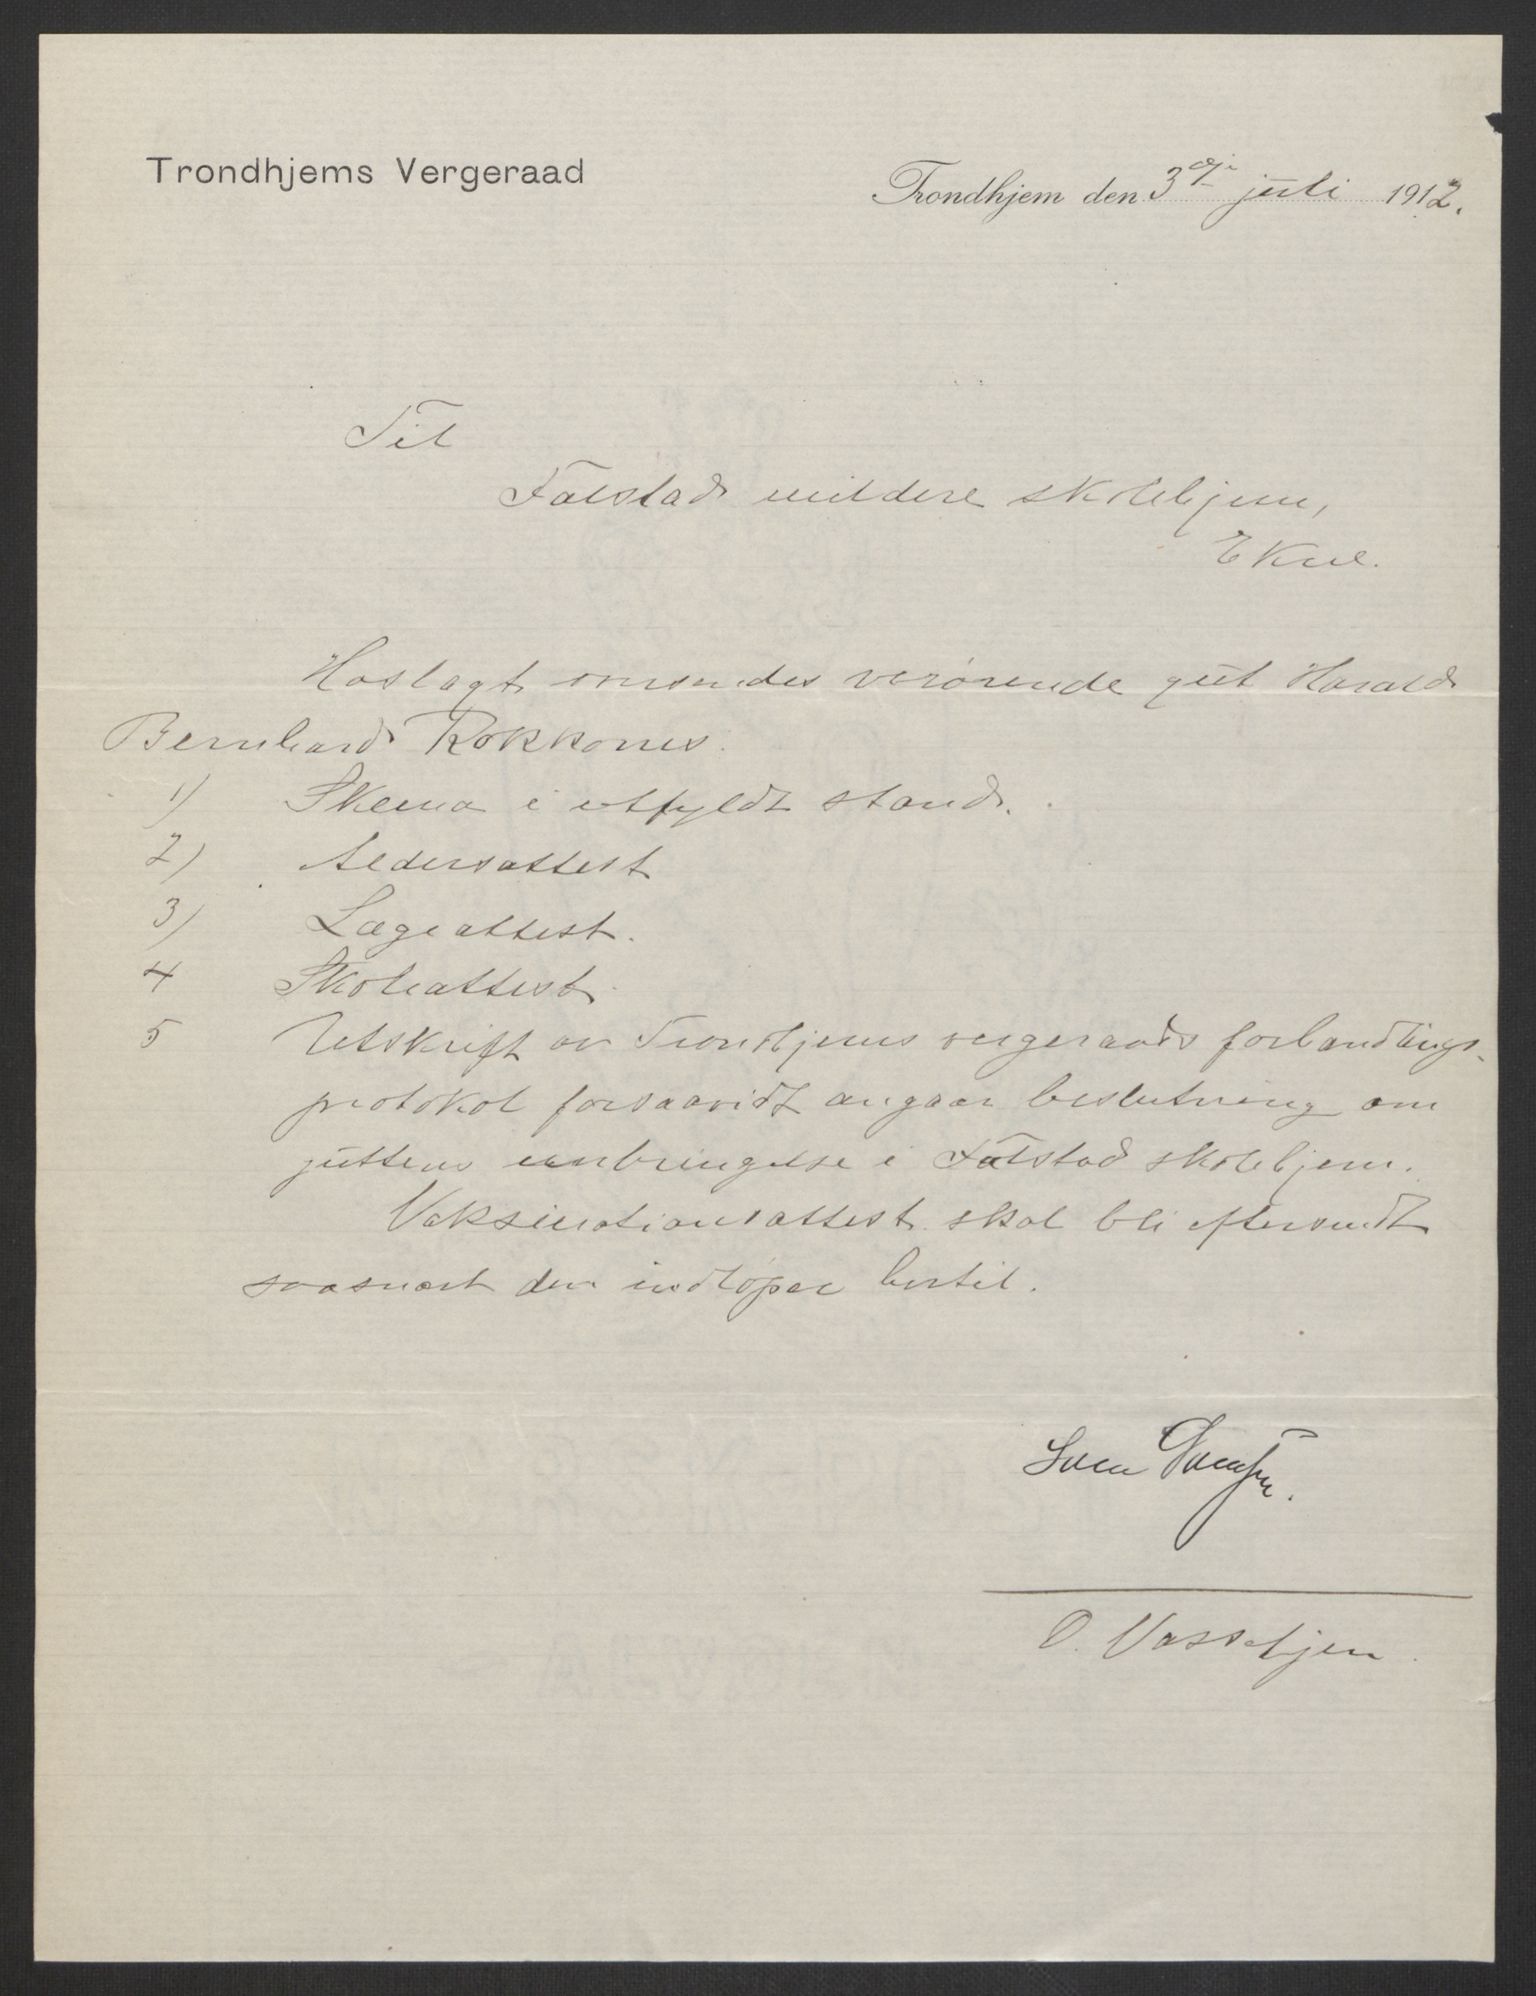 Trondhjems Vergeraad
Trondhjem den 3dje juli 1912.
Til
Falstad mildere skolehjem,
Ekne.
Hoslagt omsendes vørørende gut Harald
Bernhard Rokkones.
1) Skema i utfyldt stand.
2) Aldersattest
3) Lægeattest.
4 Skoleattest.
5 Utskrift av Trondhjems vergeraads forhandlings-
protokol forsaavidt angaar beslutning om
guttens anbringelse i Falstad skolehjem.
Vaksinationsattest skal bli eftersendt
saasnart den indløper hertil.
Sven
O. Vasshjem